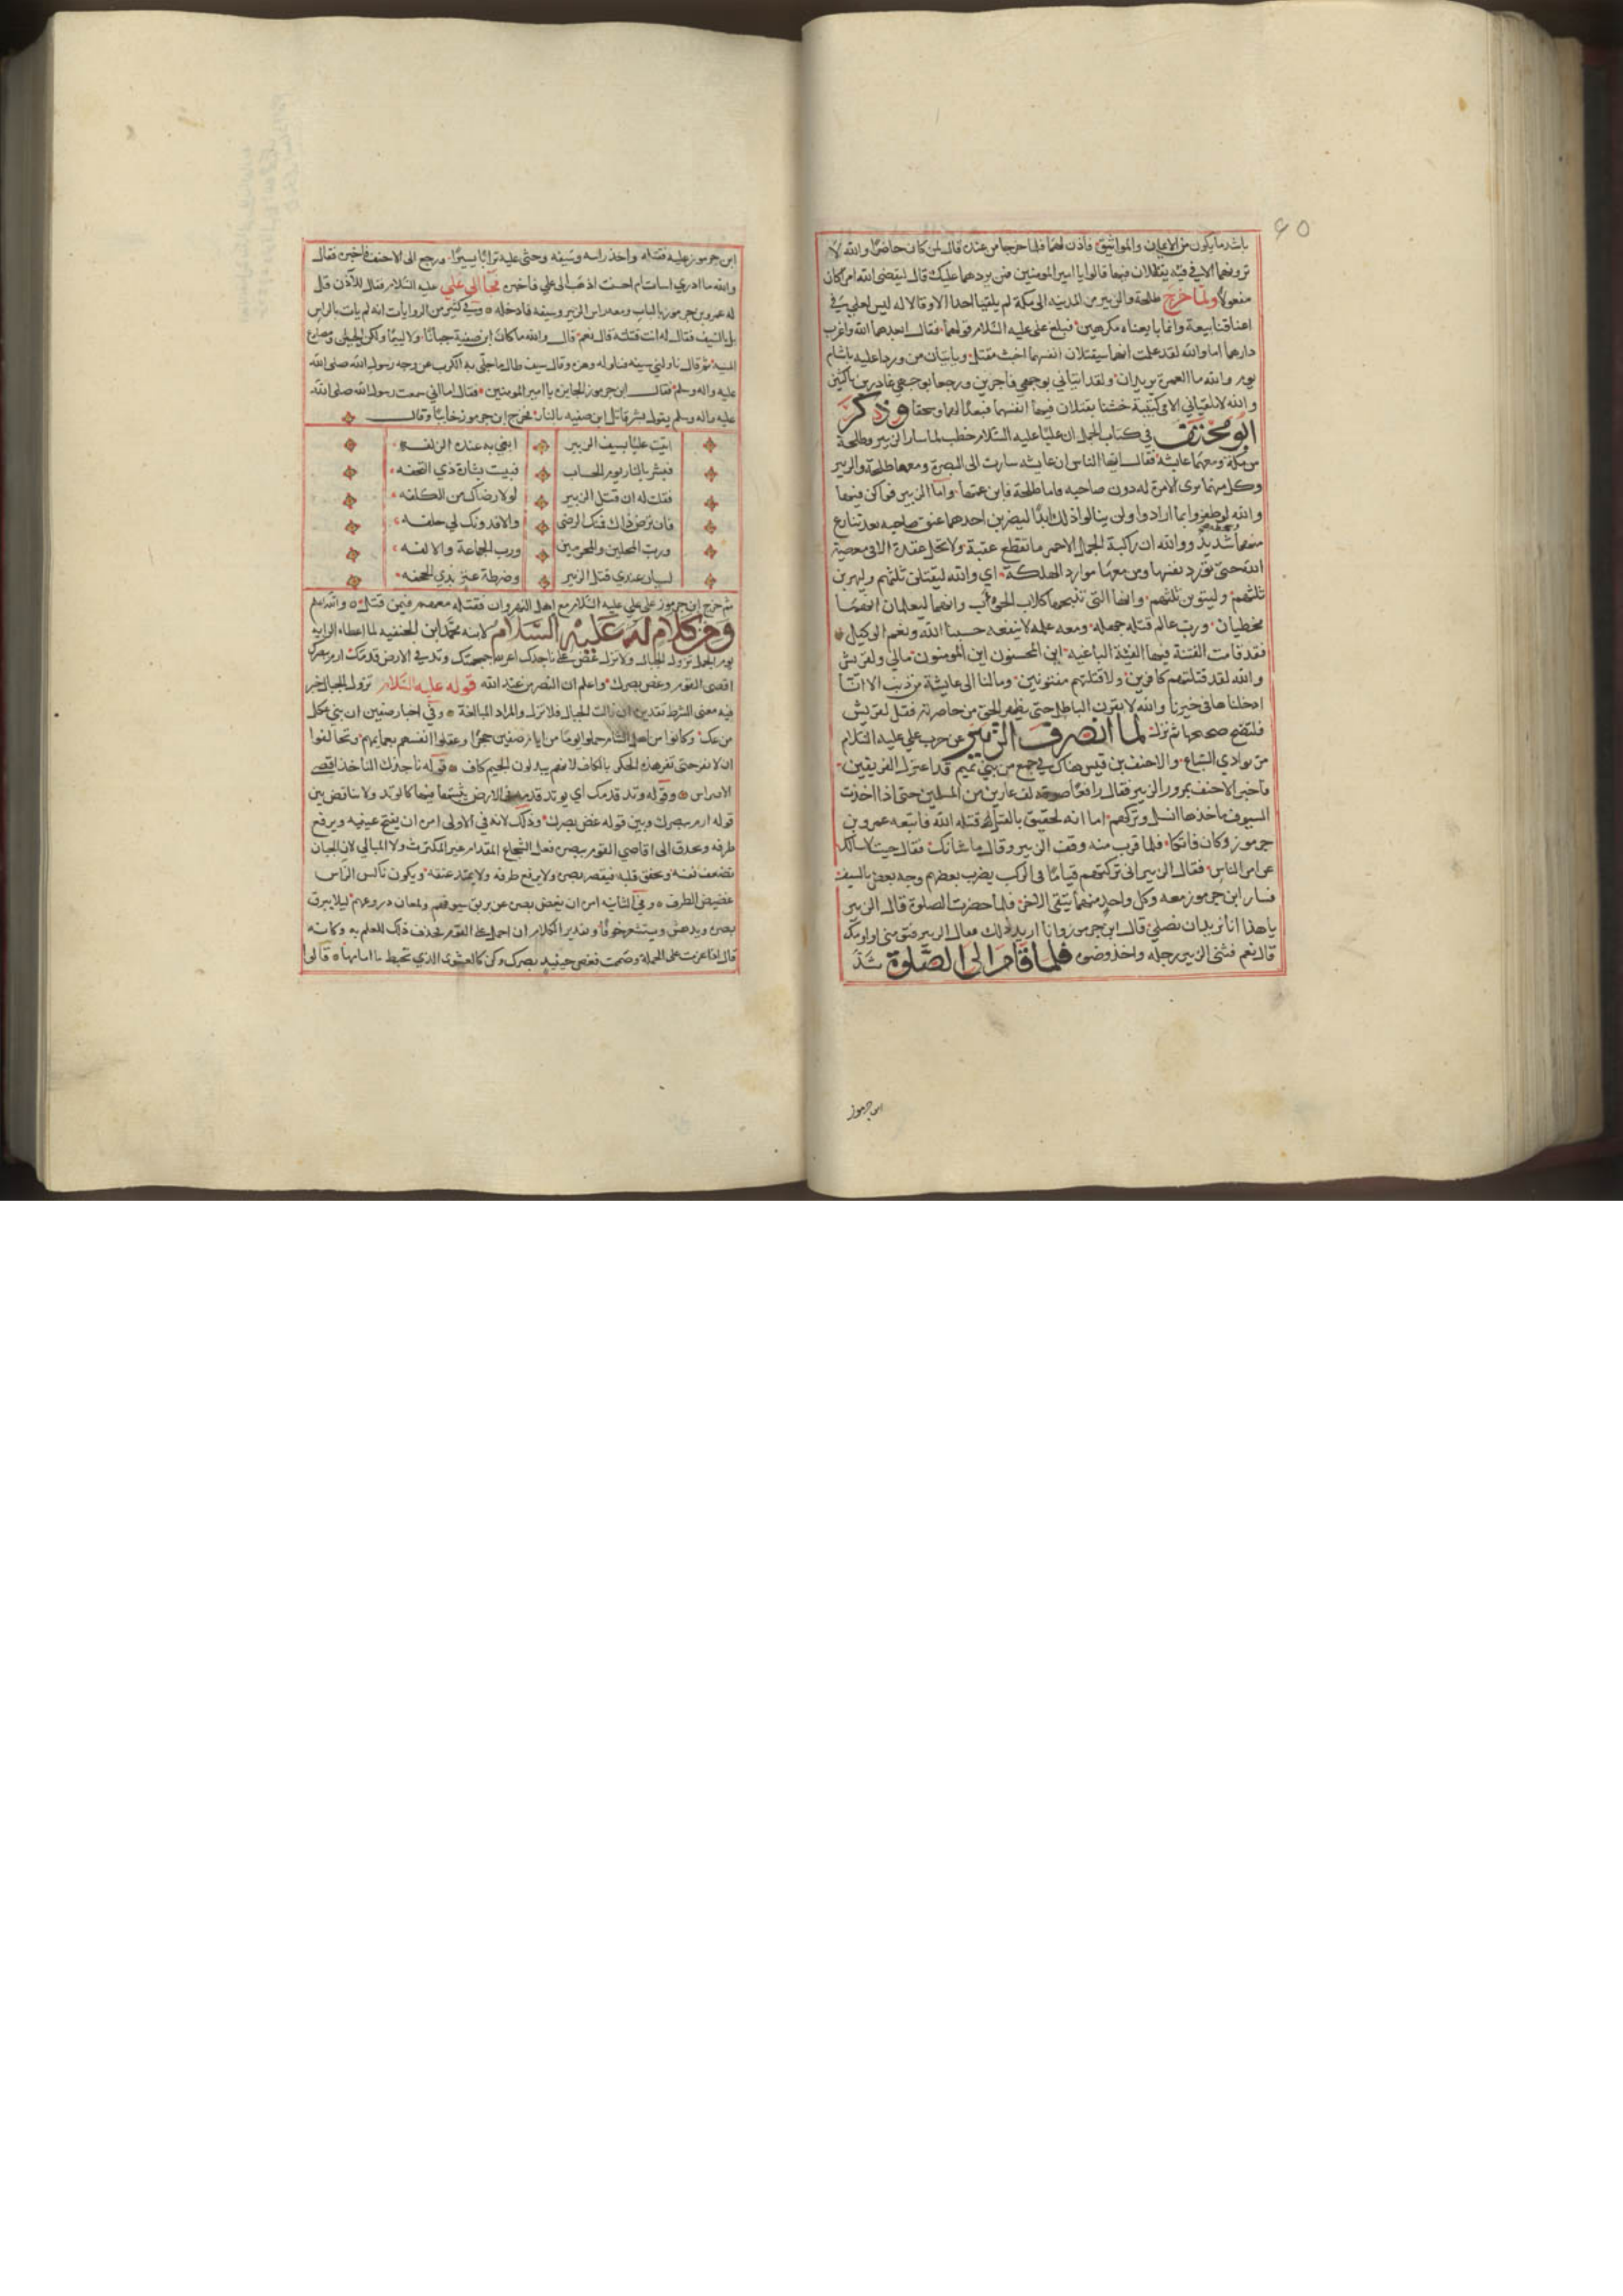 ٤٥
باشد ما يكون من الايمان والمواثيق فاذن لهما فلما خرجا من عنده قال لمن كان حاضرا والله لا
ترونهما الا في فتنة يقتتلان فيها قالوا يا امير المومنين فمر بردهما عليك قال ليقضي الله امرا كان
مفعولا ولما خرج طلحة والزبير من المدينه الى مكة لم يلقيا احدا الا وقالا له ليس لعلي في
اعناقنا بيعة وانما بايعناه مكرهين فبلغ عليا عليه السلام قولهما فقال ابعدهما الله واغرب
دارهما اما والله لقد علمت انهما سيقتلان انفسهما اخبث مقتل وياتيان من وردا عليه باشام
يوم والله ما العمرة يريدان ولقد اتياني بوجهي فاجرين ورجعا بوجهي غادرين ناكثين
والله لا يلقياني الا في كتيبة خشنا يقتلان فيها انفسهما فبعدا لهما وسحقا وذكر
ابو مخنف في كتاب الجمل ان عليا عليه السلام خطب لما سار الزبير وطلحة
من مكة ومعهما عايشة فقال ايها الناس ان عايشه سارت الى البصرة ومعها طلحة والزبير
وكل منهما يرى الامرة له دون صاحبه فاما طلحة فابن عمها واما الزبير فـ فيها
والله لو ظفروا بما ارادوا ولن ينالوا ذلك ابدا ليضربن احدهما عنق صاحبه بعد تنازع
منهما شديد ووالله ان راكبة الجمل الاحمر ما تقطع عقبة ولا تحل عقدة الا في معصية
الله حتى تورد نفسها ومن معها موارد الهلكة اي والله ليقتلن ثلثهم وليهربن
ثلثهم وليتوبن ثلثهم وانها التي تنبحها كلاب الحوأب وانهما ليعلمان انهما
مخطيان ورب عالم قتله جهله ومعه علمه لا ينفعه حسبنا الله ونعم الوكيل
فقد قامت الفتنة فيها الفئة الباغيه اين المحسنون اين المومنون مالي ولقريش
والله لقد قتلتهم كافرين ولاقتلنهم مفتونين وما لنا الى عايشة من ذنب الا انا
ادخلناها في خيرنا والله لابقرن الباطل حتى يظهر الحق من خاصرته فقل لقريش
فلتضج ضجيجها ثم نزل لما انصرف الزبير عن حرب علي عليه السلام
مر بوادي السباع والاحنف بن قيس هناك في جمع من بني تميم قد اعتزل الفريقين
فاخبر الاحنف بمرور الزبير فقال رافعا صوته لف غارين من المسلمين حتى اذا اخذت
السيوف ماخذها انسل وتركهم اما انه لحقيق بالقتل قتله الله فاتبعه عمرو بن
جرموز وكان فاتكا فلما قرب منه وقف الزبير وقال ما شانك فقال جيت لاسالك
عن امر الناس فقال الزبير اني تركتهم قياما في الركب يضرب بعضهم وجه بعض بالسيف
فسار ابن جرموز معه وكل واحد منهما يتقي الاخر فلما حضرت الصلوة قال الزبير
يا هذا انا نريد ان نصلي قال ابن جرموز وانا اريد ذلك فقال الزبير فتومني واومنك
قال نعم فثنى الزبير رجله واخذ وضوه فلما قام الى الصلوة شد
ابن جرموز
ابن جرموز عليه فقتله واخذ راسه وسيفه وحثى عليه ترابا يسيرا ورجع الى الاحنف فاخبره فقال
والله ما ادري اسات ام احسنت اذهب الى علي فاخبره فجا الى علي عليه السلام فقال للآذن قل
له عمرو بن جرموز بالباب ومعه راس الزبير وسيفه فادخله وفي كثير من الروايات انه لم يات بالراس
بل بالسيف فقال له انت قتلته قال نعم قال والله ما كان ابن صفية جبانا ولا ليما ولكن الحين ومصارع
السيه ثم قال ناولني سيفه فناوله وهزه وقال سيف طال ما جلى به الكرب عن وجه رسول الله صلى الله
عليه واله وسلم فقال ابن جرموز الجايزه يا امير المومنين فقال اما اني سمعت رسول الله صلى الله
عليه واله وسلم يقول بشر قاتل ابن صفيه بالنار فخرج ابن جرموز خايبا وقال
اتيت عليا بسيف الزبير ابغي به عنده الزلفه
فبشر بالنار يوم الحساب فبيت بشارة ذي التحفه
فقلت له ان قتل الزبير لولا رضاك من الكلفه
فان ترض ذاك فمنك الرضى والا فدونك لي حلفه
ورب المحلين والمحرمين ورب الجماعة والالفه
لسيان عندي قتل الزبير وضرطة عنز بذي الجحفه
ثم خرج ابن جرموز على علي عليه السلام مع اهل النهروان فقتله معهم فيمن قتل والله اعلم
ومن كلام له عليه السلام لابنه محمد ابن الحنفيه لما اعطاه الرايه
يوم الجمل تزول الجبال ولا تزل عض على ناجذك اعر الله جمجمتك وتد في الارض قدمك ارم ببصرك
اقصى القوم وغض بصرك واعلم ان النصر من عند الله قوله عليه السلام تزول الجبال خبر
فيه معنى الشرط تقديره ان زالت الجبال فلا تزل والمراد المبالغة وفي اخبار صفين ان بني عكل
من عك وكانوا من اهل الشام حملوا يوما من ايام صفين حجرا وعقلوا انفسهم بعمايمهم وتحالفوا
ان لا نفر حتى تفر هذه الحكر بالكاف لانهم يبدلون الجيم كاف قوله ناجذك الناجذ اقصى
الاضراس وقوله وتد قدمك اي يوتد قدمه في الارض يثبتها فيها كالوتد ولا تناقض بين
قوله ارم ببصرك وبين قوله غض بصرك وذلك لانه في الاولى امره ان يفتح عينيه ويرفع
طرفه ويحدق الى اقاصي القوم ببصره فعل الشجاع المقدام غير المكترث ولا المبالي لان الجبان
تضعف نفسه ويخفق قلبه فيقصر بصره ولا يرفع طرفه ولا يمتد عنقه ويكون ناكس الراس
غضيض الطرف وفي الثانيه امره ان يغض بصره عن بريق سيوفهم ولمعان دروعهم ليلا يبرق
بصره ويدهش ويستشعر خوفا وتقدير الكلام ان احمل على القوم فحذف ذلك للعلم به وكانه
قال اذا عزمت على الحملة وصممت فغض حينيذ بصرك وكن كالعشوى الذي تخبط ما امامها قالوا